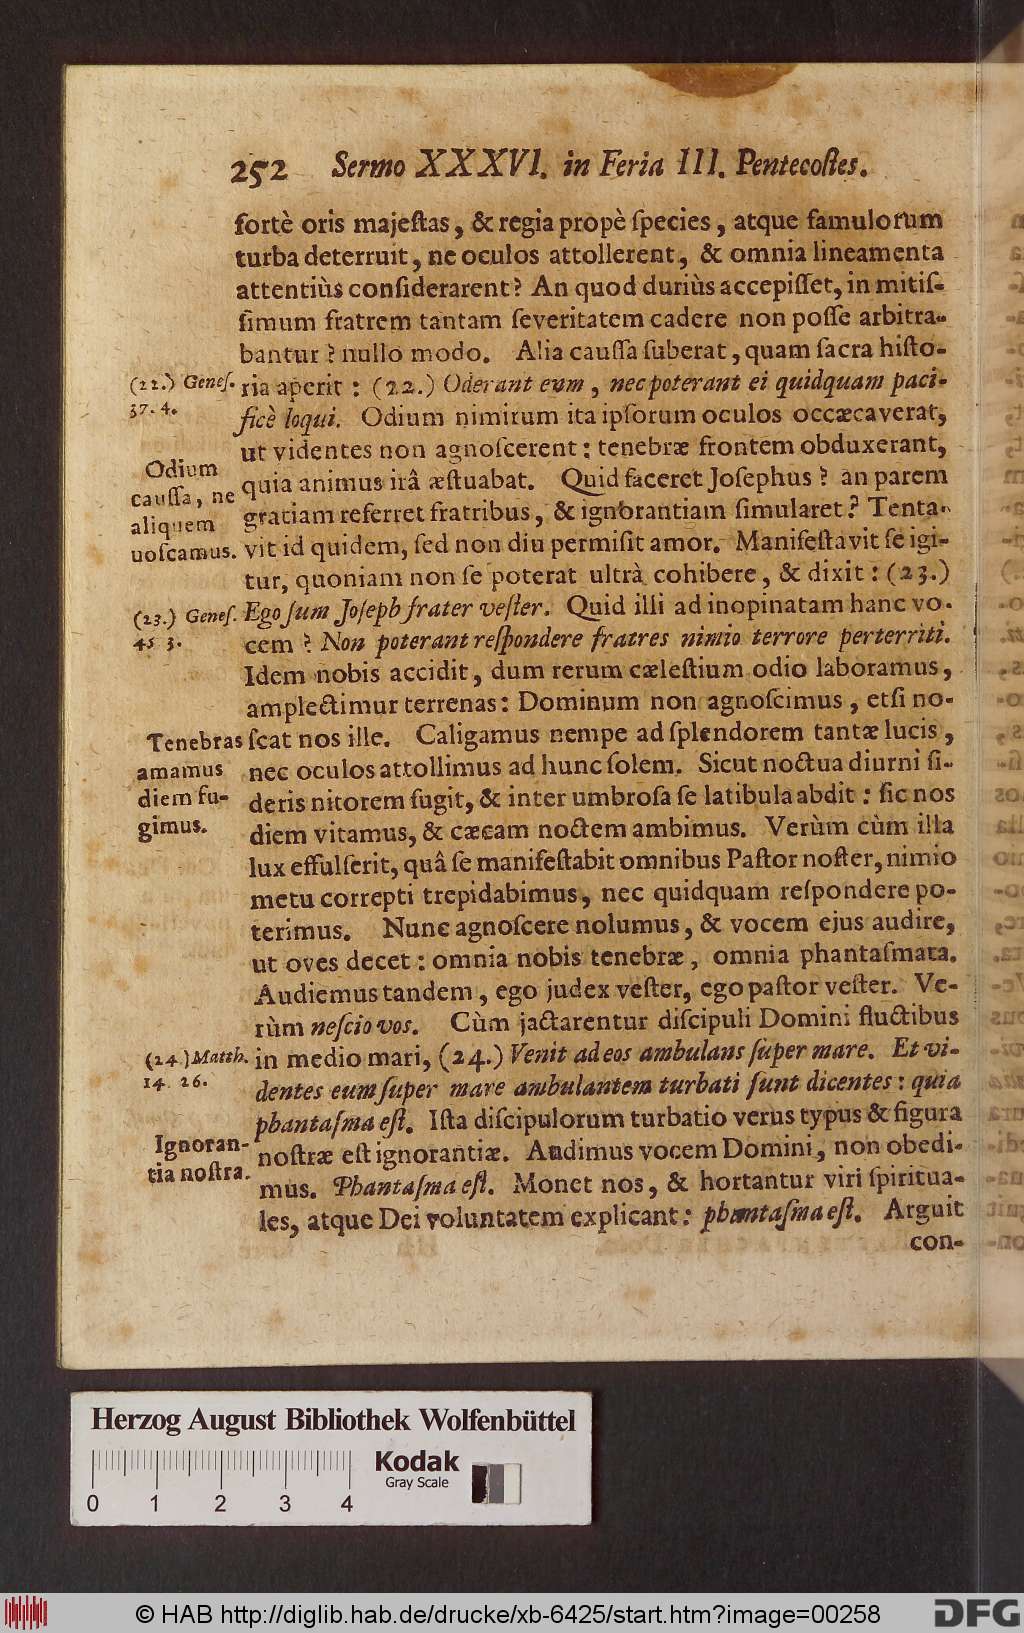 252 Sermo XXXVI. in Feria III. Pentecoſtes.
fortè oris majeſtas, & regia propè ſpecies, atque famulorum
turba deterruit, ne oculos attollerent, & omnia lineamenta
attentiùs conſiderarent? An quod duriùs accepiſſet, in mitiſ-
ſimum fratrem tantam ſeveritatem cadere non poſſe arbitra-
bantur? nullo modo. Alia cauſſa ſuberat, quam ſacra hiſto-
(22.) Geneſ.
37. 4.
ria aperit: (22.) Oderant eum, nec poterant ei quidquam paci-
ficè loqui. Odium nimirum ita ipſorum oculos occæcaverat,
ut videntes non agnoſcerent: tenebræ frontem obduxerant,
Odium
cauſſa, ne
aliquem
noſcamus.
quia animus irâ æſtuabat. Quid faceret Joſephus? an parem
gratiam referret fratribus, & ignorantiam ſimularet? Tenta-
vit id quidem, ſed non diu permiſit amor. Manifeſtavit ſe igi-
tur, quoniam non ſe poterat ultrà cohibere, & dixit: (23.)
(23.) Geneſ.
45 3.
Ego ſum Joſeph frater veſter. Quid illi ad inopinatam hanc vo-
cem? Non poterant reſpondere fratres nimio terrore perterriti.
Idem nobis accidit, dum rerum cæleſtium odio laboramus,
amplectimur terrenas: Dominum non agnoſcimus, etſi no-
Tenebras
amamus
diem fu-
gimus.
ſcat nos ille. Caligamus nempe ad ſplendorem tantæ lucis,
nec oculos attollimus ad hunc ſolem. Sicut noctua diurni ſi-
deris nitorem fugit, & inter umbroſa ſe latibula abdit: ſic nos
diem vitamus, & cæcam noctem ambimus. Verùm cùm illa
lux effulſerit, quâ ſe manifeſtabit omnibus Paſtor noſter, nimio
metu correpti trepidabimus, nec quidquam reſpondere po-
terimus. Nunc agnoſcere nolumus, & vocem ejus audire,
ut oves decet: omnia nobis tenebræ, omnia phantaſmata.
Audiemus tandem, ego judex veſter, ego paſtor veſter. Ve-
rùm neſcio vos. Cùm jactarentur diſcipuli Domini fluctibus
(24.) Matth.
14. 26.
in medio mari, (24.) Venit ad eos ambulans ſuper mare. Et vi-
dentes eum ſuper mare ambulantem turbati ſunt dicentes: quia
phantaſma eſt. Iſta diſcipulorum turbatio verus typus & figura
Ignoran-
tia noſtra.
noſtræ eſt ignorantiæ. Audimus vocem Domini, non obedi-
mus. Phantaſma eſt. Monet nos, & hortantur viri ſpiritua-
les, atque Dei voluntatem explicant: phantaſma eſt. Arguit
con-
Herzog August Bibliothek Wolfenbüttel
Kodak
Gray Scale
0 1 2 3 4
© HAB http://diglib.hab.de/drucke/xb-6425/start.htm?image=00258
DFG